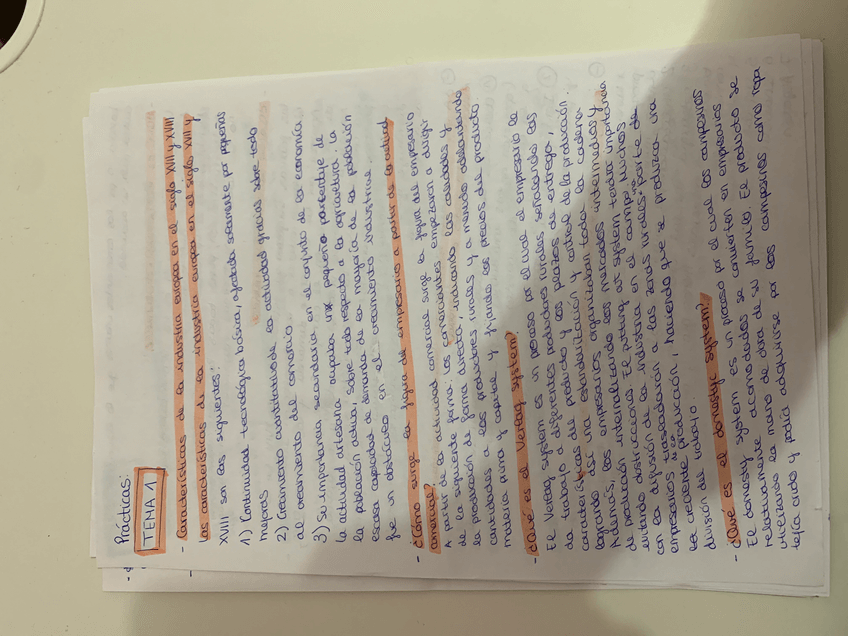 Prácticas:
TEMA 1
- Características de la industria europea en el siglo XVII y XVIII
Las características de la industria europea en el siglo XVII y
XVIII son las siguientes:
1) Continuidad tecnológica básica, afectada solamente por pequeñas
mejoras
2) Crecimiento cuantitativo de la actividad gracias sobre todo
al crecimiento del comercio
3) Su importancia secundaria en el conjunto de la economía
la actividad artesana ocupaba un pequeño porcentaje de
la población activa, sobre todo respecto a la agricultura. La
escasa capacidad de demanda de la mayoría de la población
fue un obstáculo en el crecimiento industrial.
- ¿Cómo surge la figura de empresario a partir de la actividad
comercial?
A partir de la actividad comercial surge la figura del empresario
de la siguiente forma. Los comerciantes empezaron a dirigir
la producción de forma directa, indicando las calidades y
cantidades a los productores rurales y a menudo adelantando
materia prima y capital y fijando los precios del producto
- ¿Qué es el Verlag system?
El Verlag system es un proceso por el cual el empresario le
da trabajo a diferentes productores rurales señalando las
características del producto y los plazos de entrega,
logrando así una estandarización y control de la producción.
Además, los empresarios organizaban toda la cadena
de producción internalizando los mercados intermedios y
evitando distorsiones. El putting out system tendrá importancia
con la difusión de la industria en el campo. Muchos
empresarios trasladaron a las zonas rurales parte de
su producción, haciendo que se produzca una
creciente
división del trabajo.
- ¿Qué es el domestyc system?
El domestyc system es un proceso por el cual los campesinos
relativamente acomodados se convierten en empresarios
utilizando la mano de obra de su familia. El producto se
tejía crudo y podía adquirirse por los campesinos como ropa